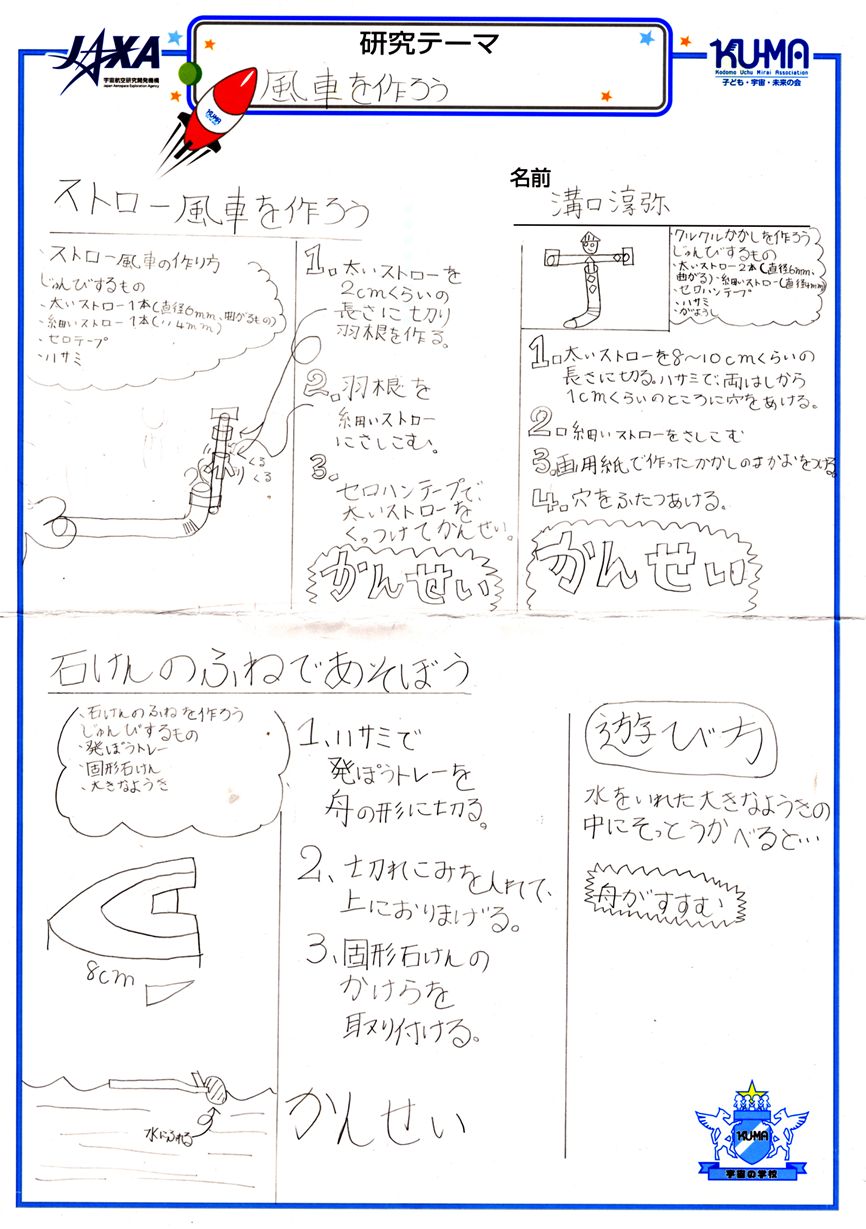 研究テーマ
JAXA
宇宙航空研究開発機構
Japan Aerospace Exploration Agency
KUMA
Kodomo Uchu Mirai Association
子ども・宇宙・未来の会
KUMA
風車を作ろう
名前
溝口淳弥
ストロー風車を作ろう
・ストロー風車の作り方
じゅんびするもの
・太いストロー1本(直径6mm、曲がるもの)
・細いストロー1本(〃4mm)
・セロテープ
・ハサミ
くる
くる
1.太いストローを
2cmくらいの
長さに切り
羽根を作る。
2.羽根を
細いストロー
にさしこむ。
3.
セロハンテープで、
太いストローを
くっつけてかんせい。
かんせい
・クルクルかかしを作ろう
じゅんびするもの
・太いストロー2本(直径6mm、
曲がる)・細いストロー(直径4mm)
・セロハンテープ
・ハサミ
・がようし
1.太いストローを8～10cmくらいの
長さに切る。ハサミで、両はしから
1cmくらいのところに穴をあける。
2.細いストローをさしこむ
3.画用紙で作ったかかしのまかおをつける
4.穴をふたつあける。
かんせい
石けんのふねであそぼう
・石けんのふねを作ろう
じゅんびするもの
・発ぽうトレー
・固形石けん
・大きなようき
8cm
水にふれる
1、ハサミで
発ぽうトレーを
舟の形に切る。
2、切れこみを入れて、
上におりまげる。
3、固形石けんの
かけらを
取り付ける。
かんせい
遊び方
水をいれた大きなようきの
中にそっとうかべると…
舟がすすむ
KUMA
宇宙の学校